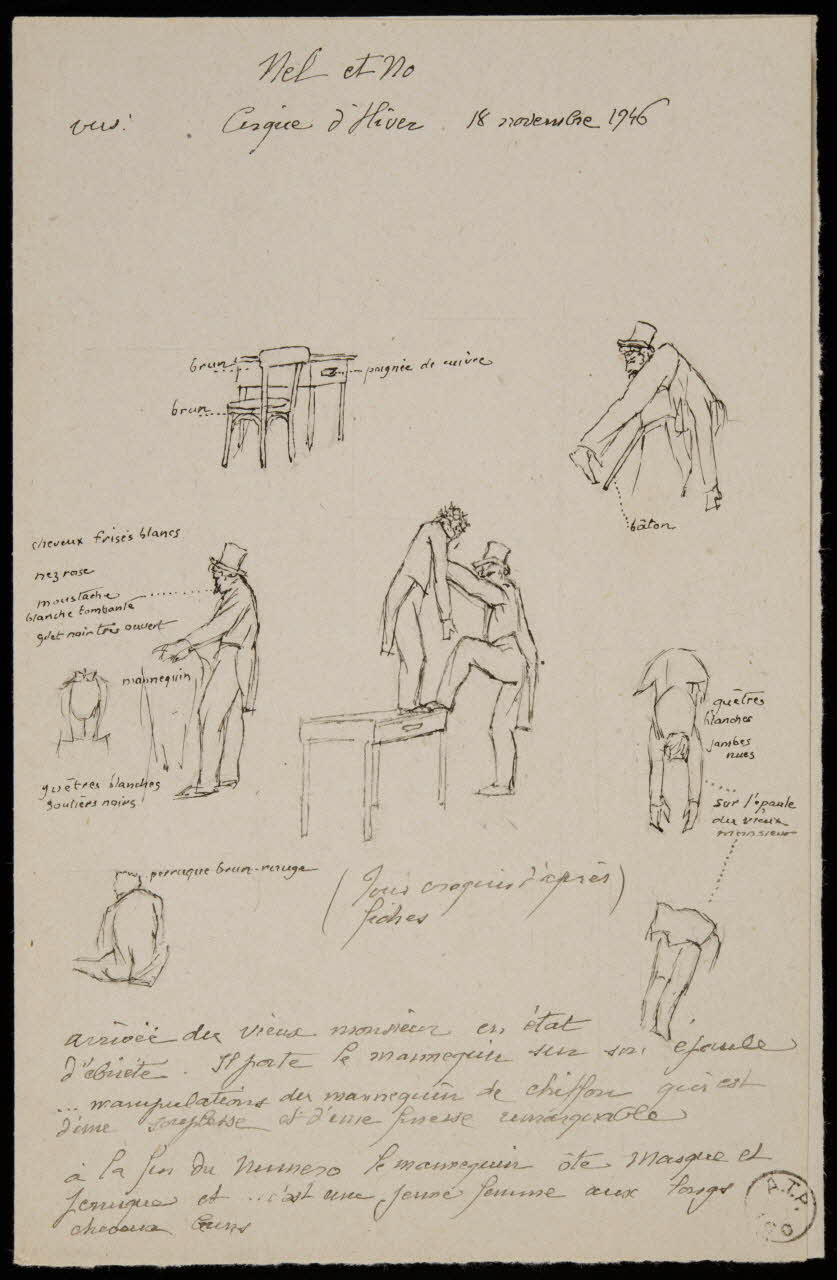 Nel et No
vus: Cirque d'Hiver 18 novembre 1946
brun
poignée de cuivre
brun
bâton
cheveux frisés blancs
nez rose
moustache
blanche tombante
gilet noir très ouvert
mannequin
guêtres blanches
souliers noirs
guêtres
blanches
jambes
nues
sur l'épaule
du vieux
monsieur
perruque brun-rouge
(Tous croquis d'après
fiches)
arrivée du vieux monsieur en état
d'ébriété. Il porte le mannequin sur son épaule
... manipulations du mannequin de chiffon qui est
d'une souplesse et d'une finesse remarquable
à la fin du numero le mannequin ôte masque et
perruque et ... c'est une jeune femme aux longs
cheveux bruns
A.T.P.